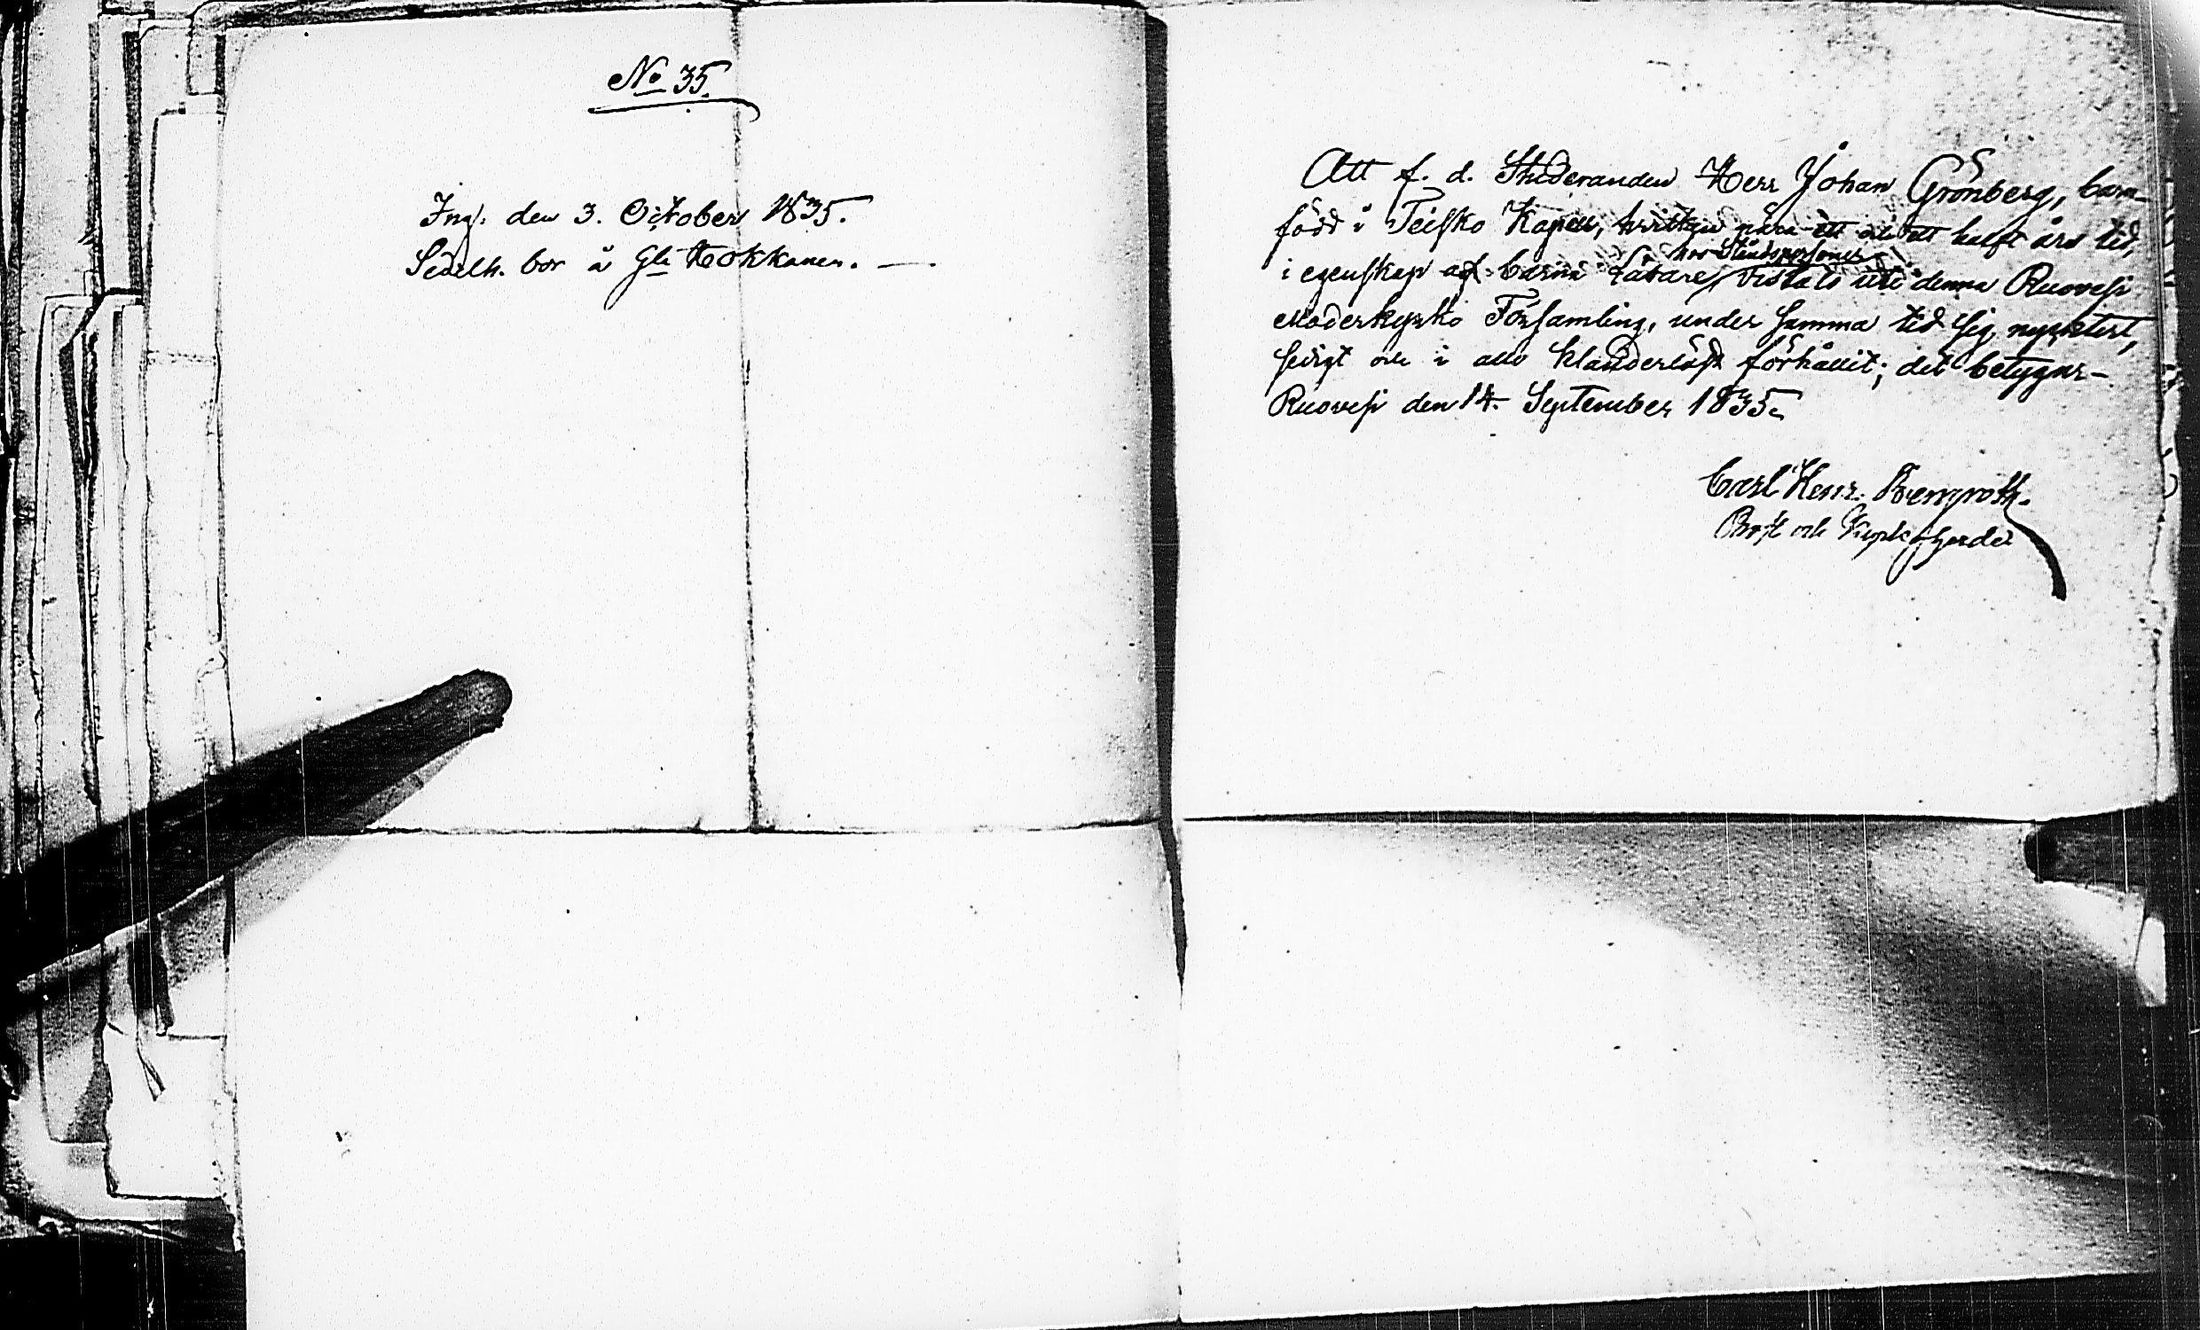 No 35.
Ingf. den 3. October 1835.
Sedelh. bor å Gla Kokkanen. —
Att f. d. Studeranden Herr Johan Grönberg, barn-
född i Teisko Kapell, hvilken nära ett och ett halft års tid,
hos Ståndspersoner
i egenskap af barna Lärare, vistats uti denna Ruovesi
Moderkyrko Församling, under samma tid sig nycktert,
sedigt och i allo klanderlöst förhållit; det betygar-
Ruovesi den 14. September 1835.
Carl Henr. Bergroth.
Prost och Kyrkoherde